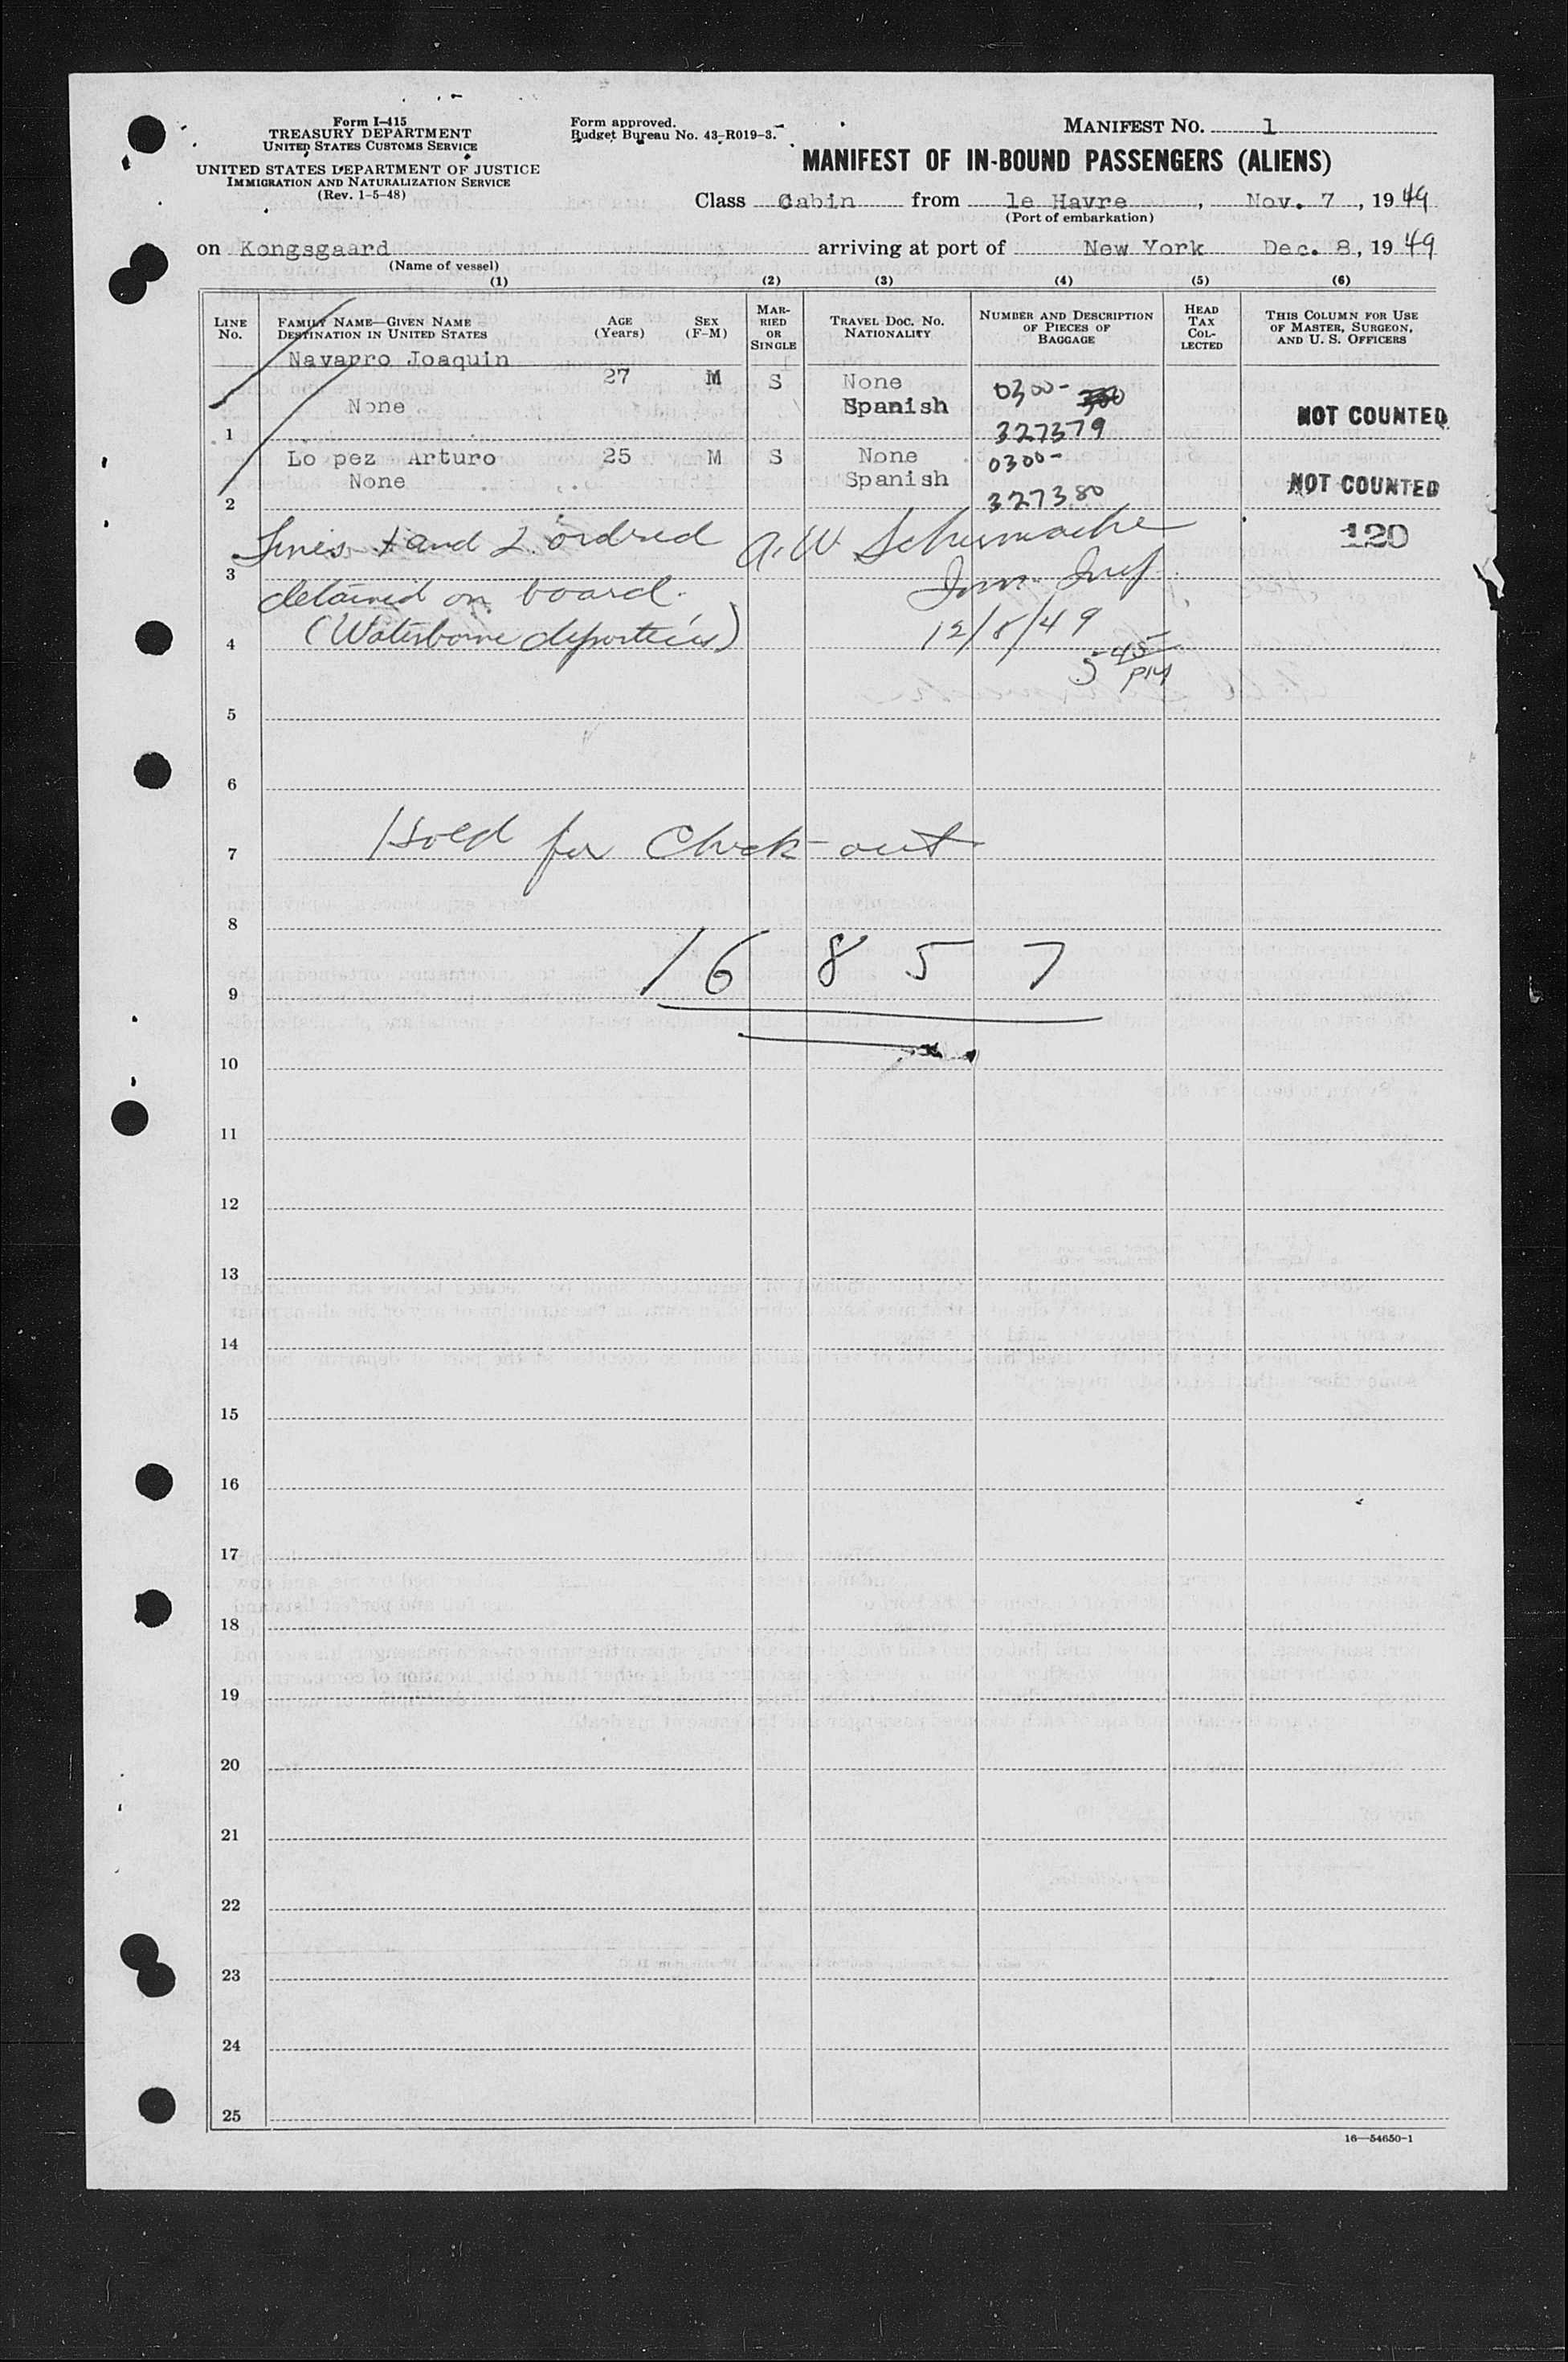 Form I-415
TREASURY DEPARTMENT
UNITED STATES CUSTOMS SERVICE
UNITED STATES DEPARTMENT OF JUSTICE
IMMIGRATION AND NATURALIZATION SERVICE
(Rev. 1-5-48)
Form approved.
Budget Bureau No. 43-R019-3.
MANIFEST NO. 1
MANIFEST OF IN-BOUND PASSENGERS (ALIENS)
Class Cabin from le Havre, Nov. 7, 1949
(Port of embarkation)
on Kongsgaard arriving at port of New York Dec. 8, 1949
(Name of vessel)
(1) (2) (3) (4) (5) (6)
LINE NO.
FAMILY NAME—GIVEN NAME
DESTINATION IN UNITED STATES
AGE (Years)
SEX (F-M)
MARRIED OR SINGLE
TRAVEL DOC. NO.
NATIONALITY
NUMBER AND DESCRIPTION OF PIECES OF BAGGAGE
HEAD TAX COLLECTED
THIS COLUMN FOR USE OF MASTER, SURGEON, AND U. S. OFFICERS
Navarro Joaquin
27 M S None 0300-
None Spanish NOT COUNTED
1 327379
Lo pez Arturo 25 M S None 0300-
None Spanish NOT COUNTED
2 327380
Lines 1 and 2 ordred A. W. Schumache 120
3
detained on board. Imm. Insp.
4 (Waterborne deportees) 12/8/49
5 45 PM
5
6
7 Hold for Check-out
8
9 16 8 5 7
10
11
12
13
14
15
16
17
18
19
20
21
22
23
24
25
16—54650-1